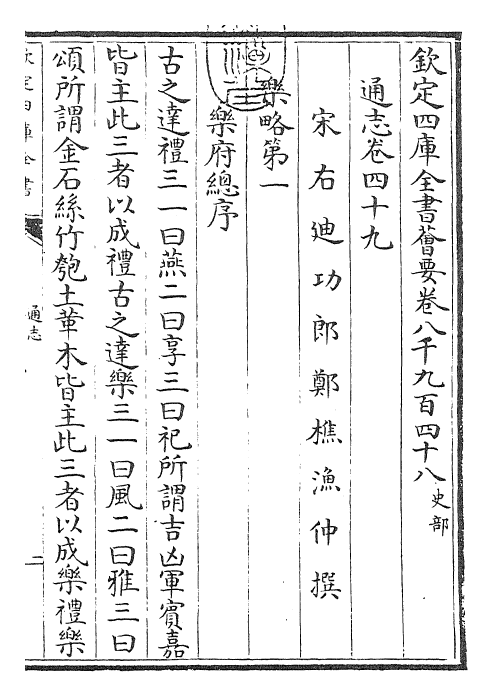 欽定四庫全書薈要卷八千九百四十八史部
通志卷四十九
宋右迪功郎鄭樵漁仲撰
樂略第一
樂府總序
古之達禮三一曰燕二曰享三曰祀所謂吉凶軍賓嘉
皆主此三者以成禮古之達樂三一曰風二曰雅三曰
頌所謂金石絲竹匏土革木皆主此三者以成樂禮樂
欽定四庫全書
通志